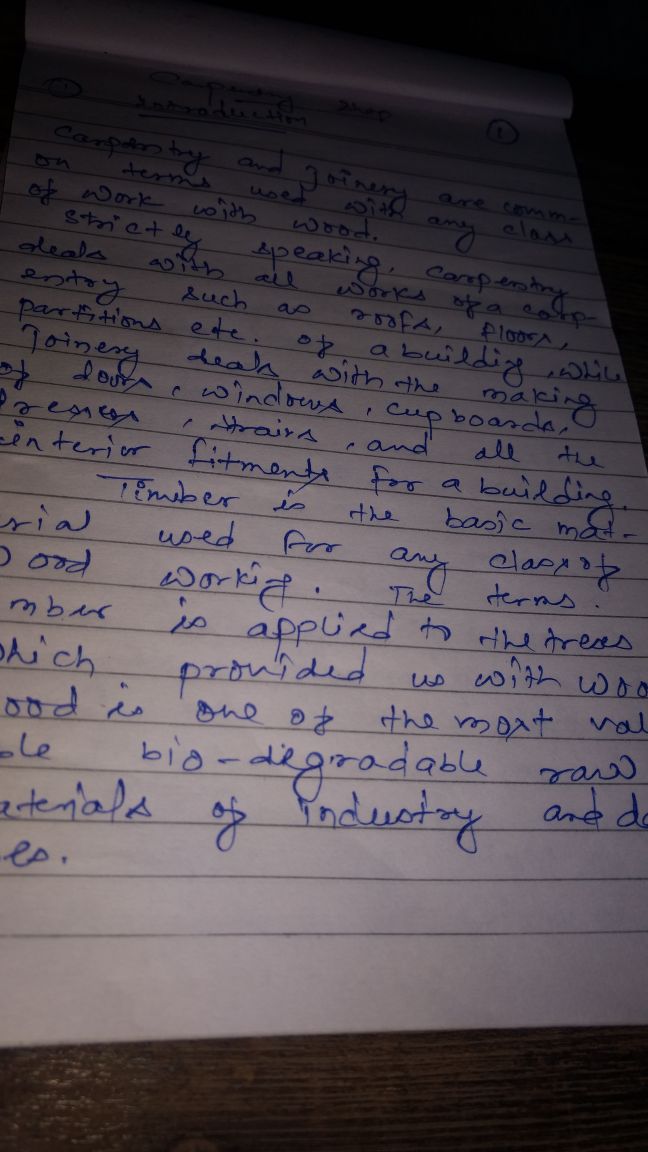 ① Carpentry Shop ①
Introduction
Carpentry and Joinery are comm-
on terms used with any class
of work with wood.
Strictly speaking, carpentry
deals with all works of a carp-
entry such as roofs, floors,
partitions etc. of a building, while
Joinery deals with the making
of doors, windows, cupboards,
resses, stairs, and all the
interior fitments for a building.
Timber is the basic mat-
rial used for any class of
ood working. The terms.
mber is applied to the trees
hich provided us with woo
ood is one of the most val
ble bio-degradable raw
aterials of industry and do
es.